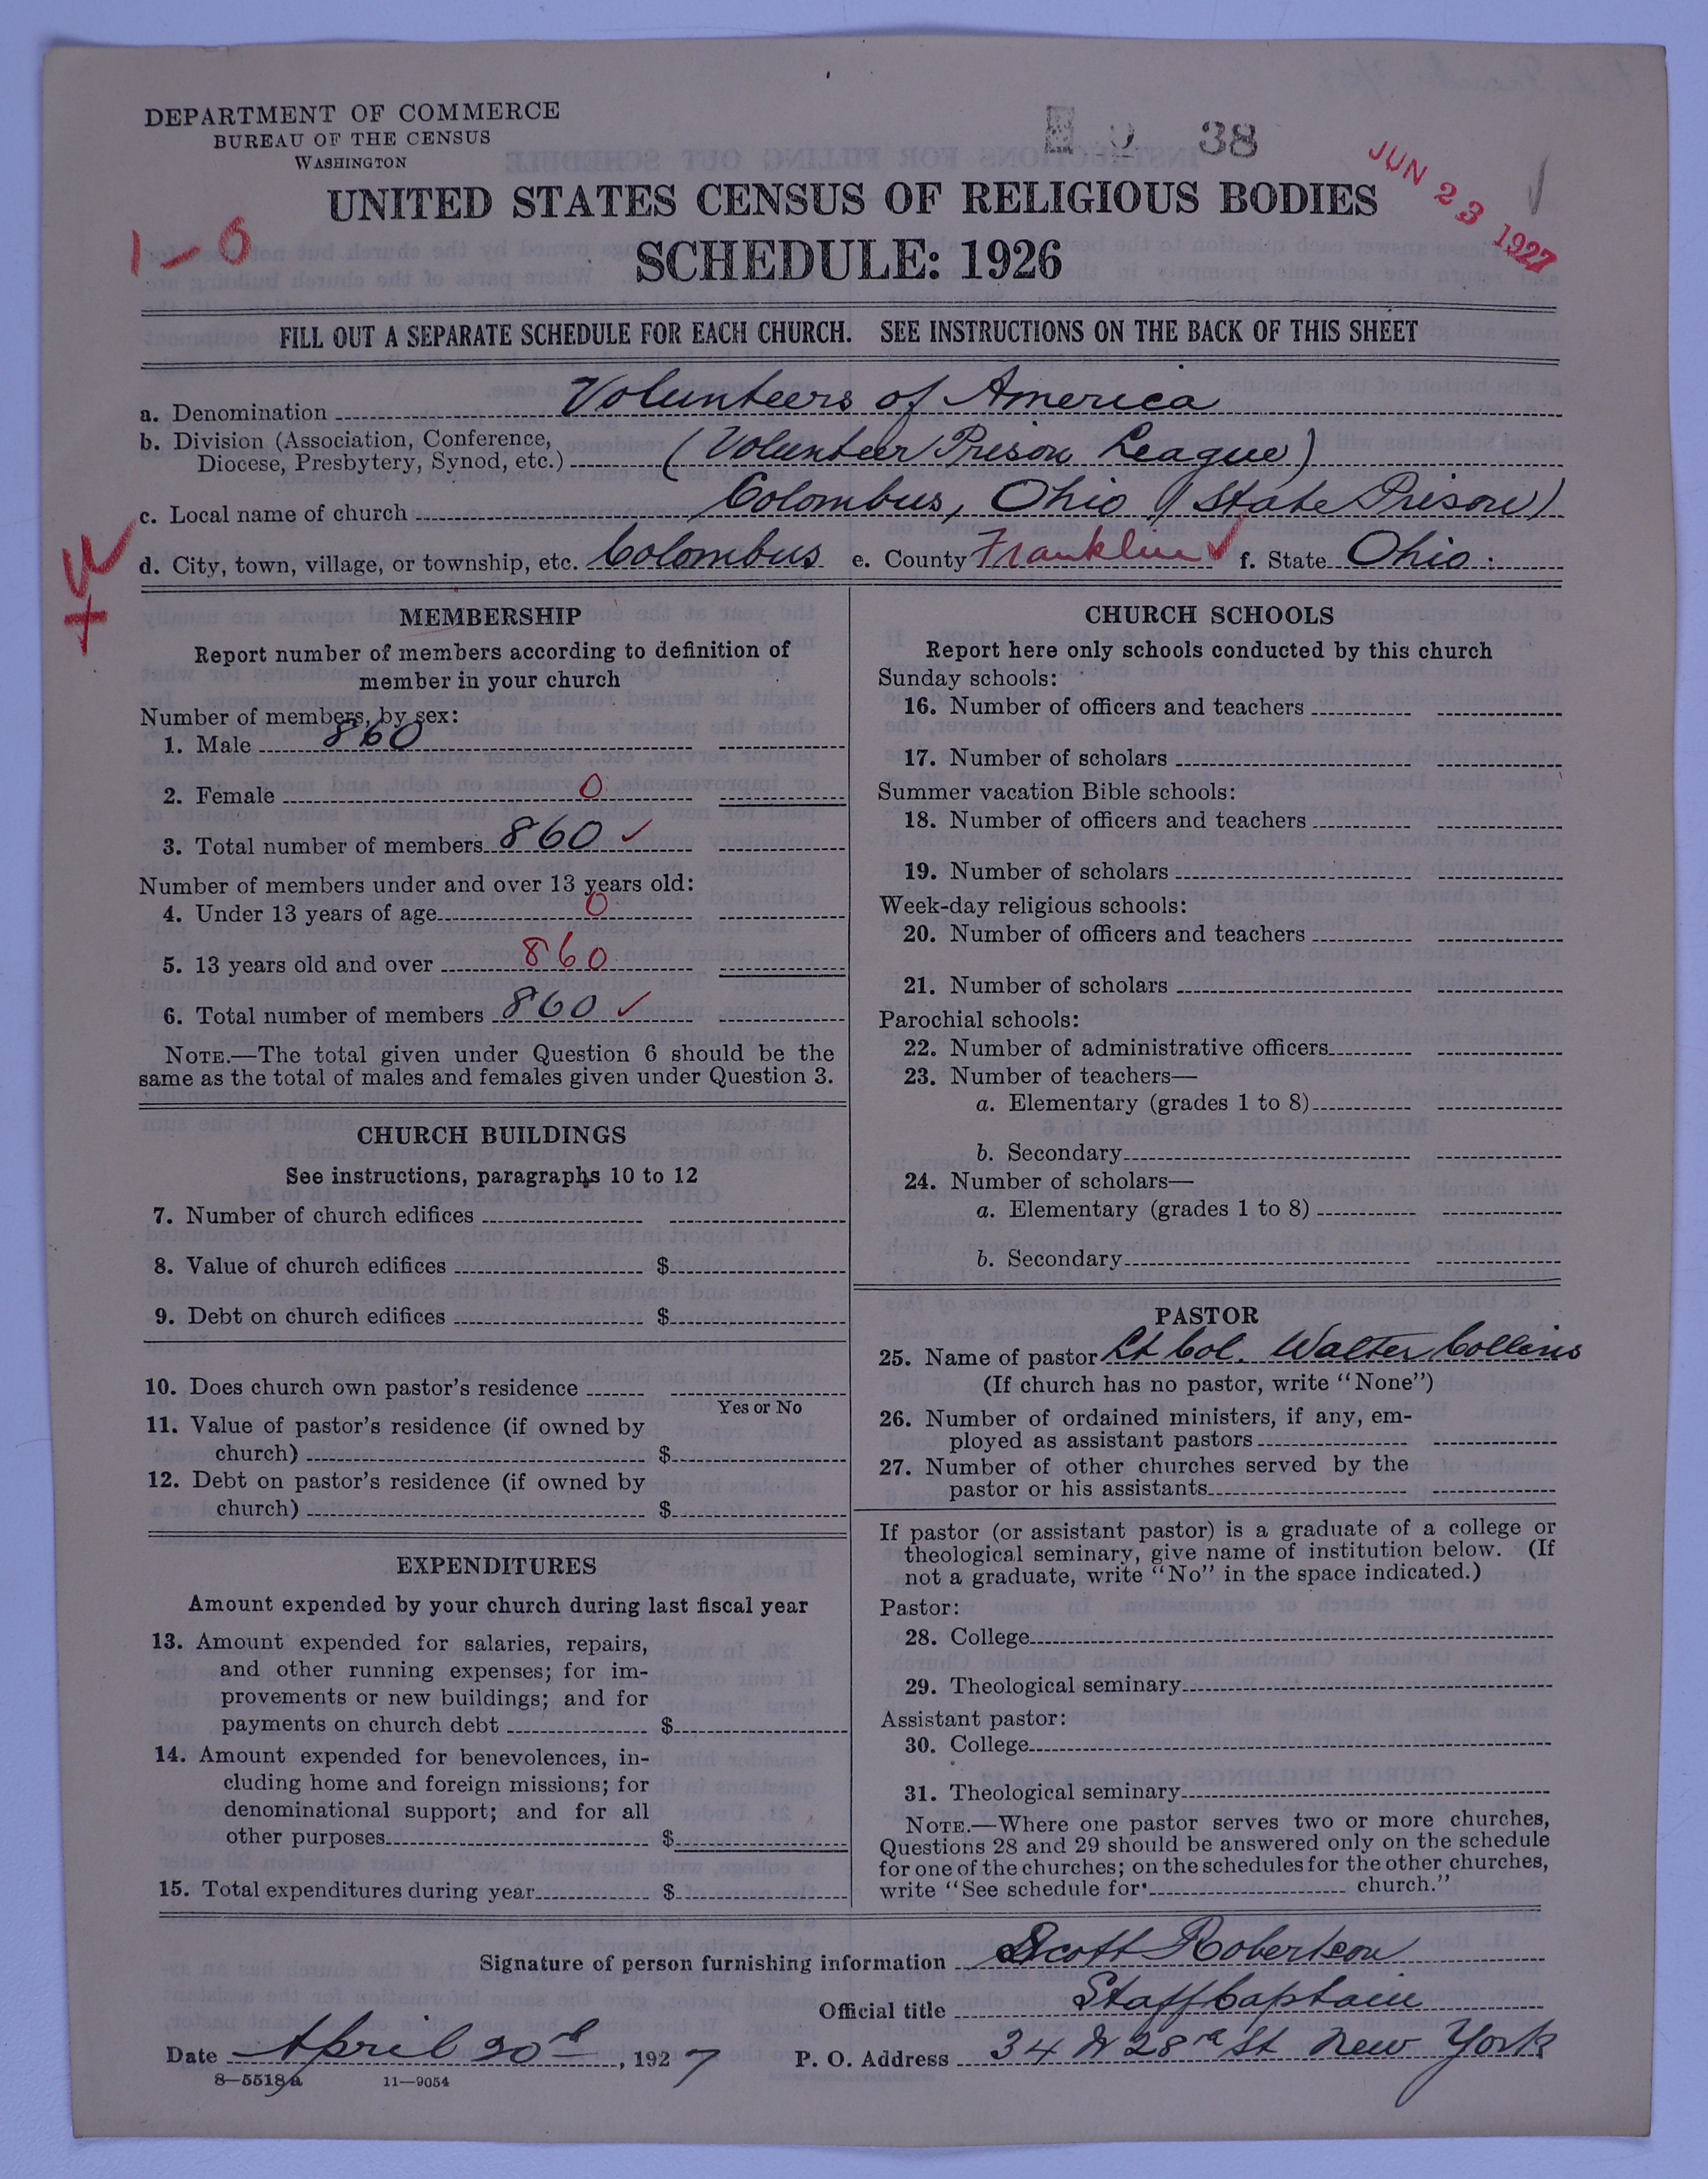 DEPARTMENT OF COMMERCE
BUREAU OF THE CENSUS
WASHINGTON
38
JUN 23 1927
UNITED STATES CENSUS OF RELIGIOUS BODIES
1-0
SCHEDULE: 1926
FILL OUT A SEPARATE SCHEDULE FOR EACH CHURCH. SEE INSTRUCTIONS ON THE BACK OF THIS SHEET
a. Denomination Volunteers of America
b. Division (Association, Conference,
Diocese, Presbytery, Synod, etc.) (Volunteer Prison League)
c. Local name of church Colombus, Ohio (State Prison)
d. City, town, village, or township, etc. Colombus e. County Franklin f. State Ohio
MEMBERSHIP
Report number of members according to definition of
member in your church
Number of members, by sex:
1. Male 860
2. Female 0
3. Total number of members 860 ✓
Number of members under and over 13 years old:
4. Under 13 years of age 0
5. 13 years old and over 860
6. Total number of members 860 ✓
NOTE.—The total given under Question 6 should be the
same as the total of males and females given under Question 3.
CHURCH BUILDINGS
See instructions, paragraphs 10 to 12
7. Number of church edifices
8. Value of church edifices $
9. Debt on church edifices $
10. Does church own pastor's residence
Yes or No
11. Value of pastor's residence (if owned by
church) $
12. Debt on pastor's residence (if owned by
church) $
EXPENDITURES
Amount expended by your church during last fiscal year
13. Amount expended for salaries, repairs,
and other running expenses; for im-
provements or new buildings; and for
payments on church debt $
14. Amount expended for benevolences, in-
cluding home and foreign missions; for
denominational support; and for all
other purposes $
15. Total expenditures during year $
CHURCH SCHOOLS
Report here only schools conducted by this church
Sunday schools:
16. Number of officers and teachers
17. Number of scholars
Summer vacation Bible schools:
18. Number of officers and teachers
19. Number of scholars
Week-day religious schools:
20. Number of officers and teachers
21. Number of scholars
Parochial schools:
22. Number of administrative officers
23. Number of teachers—
a. Elementary (grades 1 to 8)
b. Secondary
24. Number of scholars—
a. Elementary (grades 1 to 8)
b. Secondary
PASTOR
25. Name of pastor Lt Col. Walter Collins
(If church has no pastor, write "None")
26. Number of ordained ministers, if any, em-
ployed as assistant pastors
27. Number of other churches served by the
pastor or his assistants
If pastor (or assistant pastor) is a graduate of a college or
theological seminary, give name of institution below. (If
not a graduate, write "No" in the space indicated.)
Pastor:
28. College
29. Theological seminary
Assistant pastor:
30. College
31. Theological seminary
NOTE.—Where one pastor serves two or more churches,
Questions 28 and 29 should be answered only on the schedule
for one of the churches; on the schedules for the other churches,
write "See schedule for church."
Signature of person furnishing information Scott Robertson
Official title Staff Captain
Date April 20th, 1927 P. O. Address 34 W 28 St New York
8—5518a 11—9054